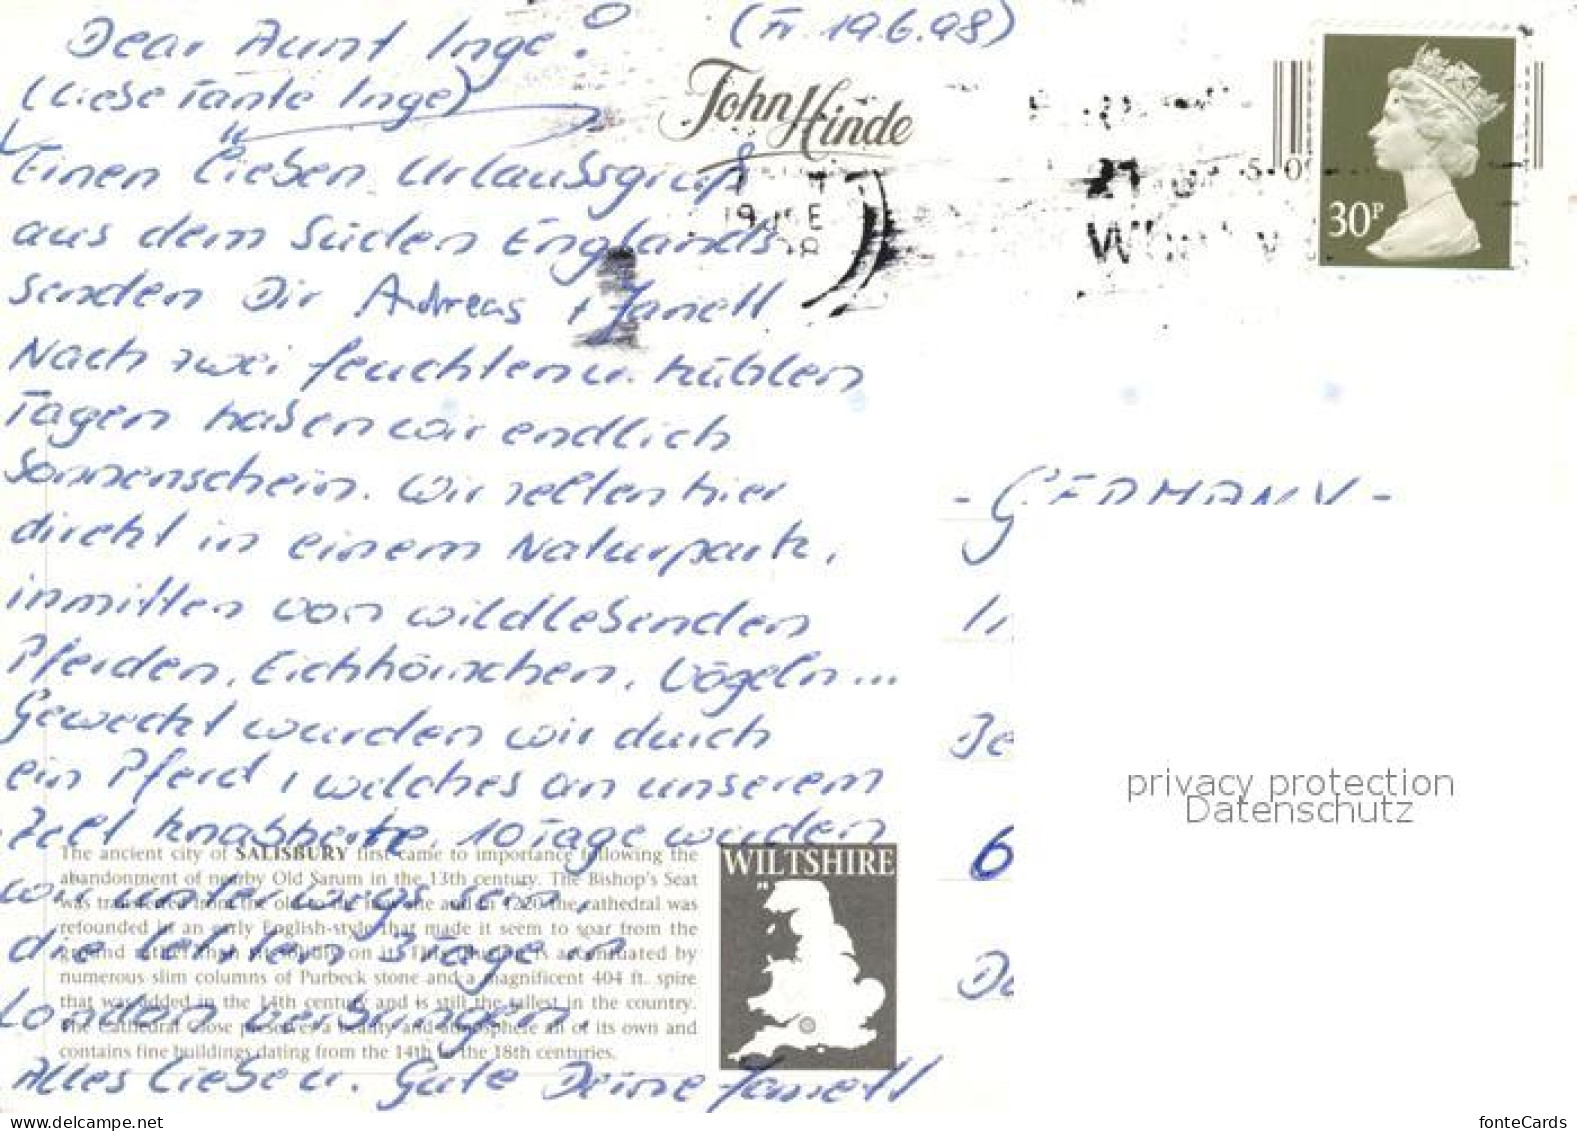 Dear Aunt Inge! (Fr. 19.6.98)
(Liebe Tante Inge)
Einen lieben Urlaubsgruß
aus dem Süden Englands
senden Dir Andreas + Janett
Nach zwei feuchten u. kühlen
Tagen haben wir endlich
Sonnenschein. Wir zelten hier
direkt in einem Naturpark,
inmitten von wildlebenden
Pferden, Eichhörnchen, Vögeln...
Geweckt wurden wir durch
ein Pferd, welches an unserem
Zelt knabberte. 10 Tage werden
wir unterwegs sein,
die letzten 3 Tage in
London verbringen.
Alles Liebe u. Gute Deine Janett
John Hinde
19 JNE
30P
- GERMANY -
In
Be
6
Do
privacy protection
Datenschutz
The ancient city of SALISBURY first came to importance following the
abandonment of nearby Old Sarum in the 13th century. The Bishop's Seat
was transferred from the old to the new site and in 1220 the cathedral was
refounded in an early English-style that made it seem to soar from the
ground rather than sit solidly on it. This illusion is accentuated by
numerous slim columns of Purbeck stone and a magnificent 404 ft. spire
that was added in the 14th century and is still the tallest in the country.
The Cathedral Close preserves a beauty and atmosphere all of its own and
contains fine buildings dating from the 14th to the 18th centuries.
WILTSHIRE
www.delcampe.net
fonteCards